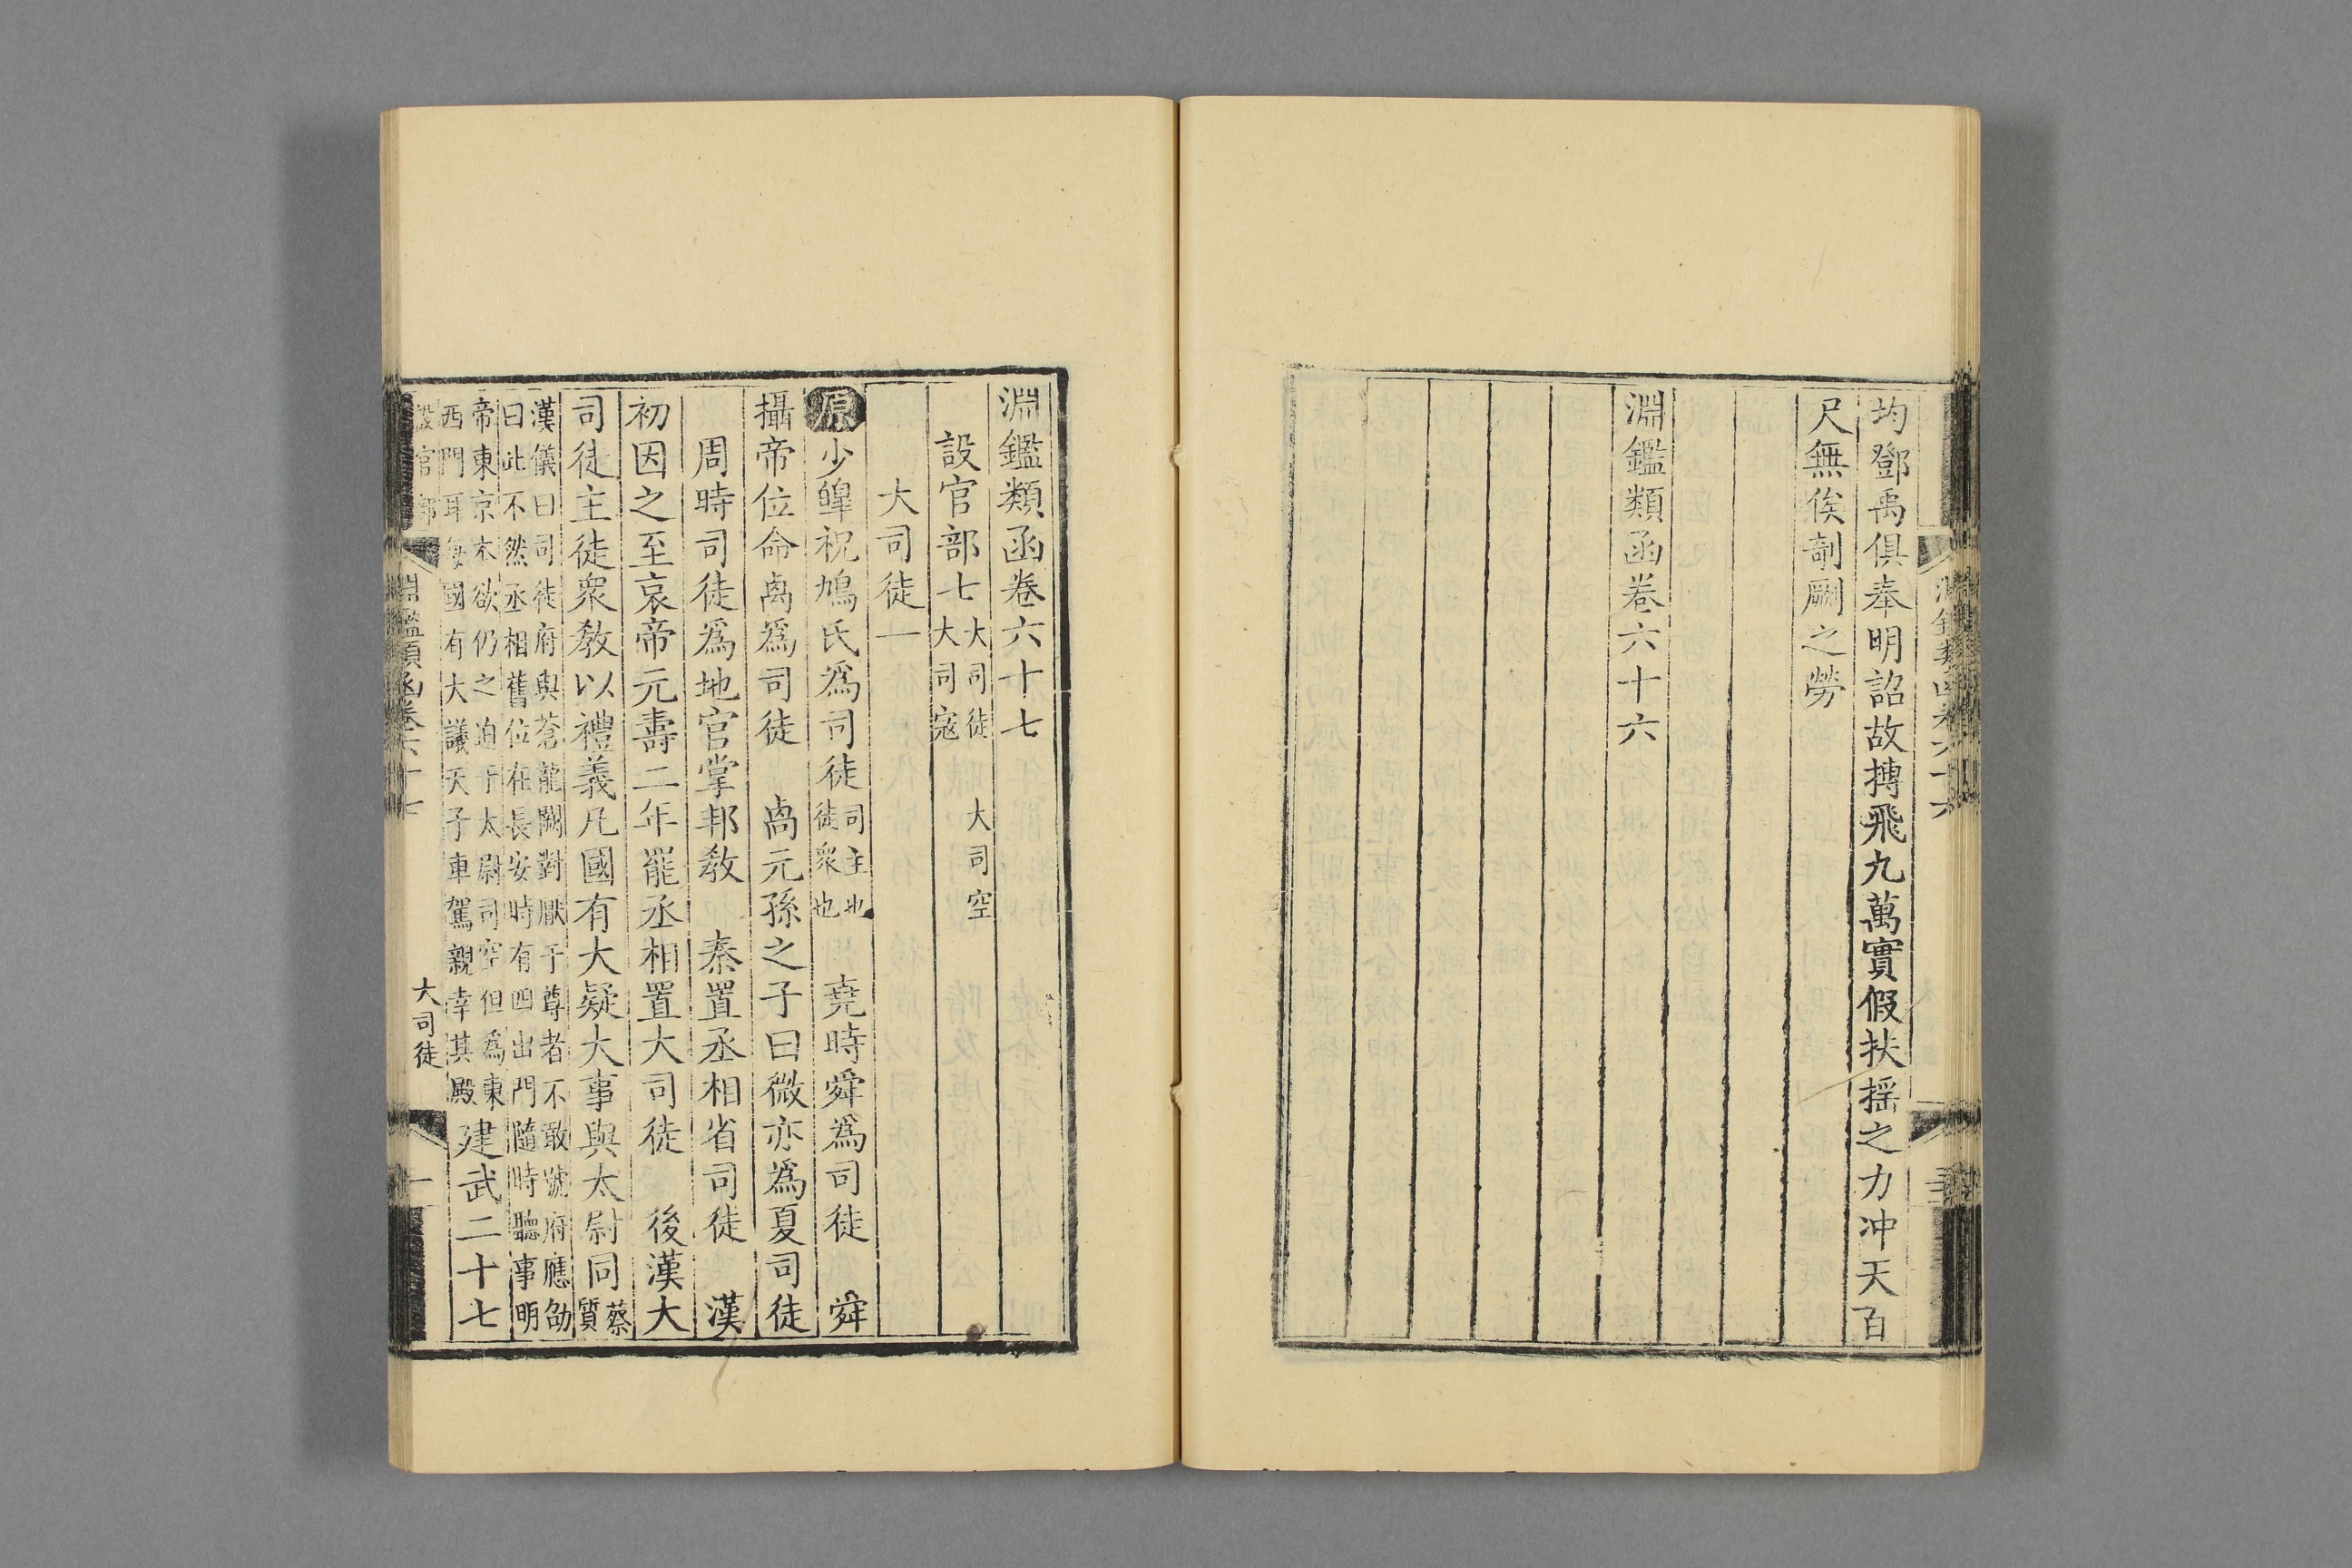 均鄧禹俱奉明詔故摶飛九萬實假扶搖之力冲天百
尺無俟剞劂之勞
淵鑑類函卷六十六
淵鑑類函卷六十六
淵鑑類函卷六十七
設官部七大司徒 大司空
大司寇
大司徒一
原少皥祝鳩氏爲司徒司主也
徒衆也 堯時舜爲司徒 舜
攝帝位命禼爲司徒 禼元孫之子曰微亦爲夏司徒
周時司徒爲地官掌邦敎 秦置丞相省司徒 漢
初因之至哀帝元壽二年罷丞相置大司徒 後漢大
司徒主徒衆敎以禮義凡國有大疑大事與太尉同蔡
質
漢儀曰司徒府與蒼龍闕對厭于尊者不敢號府應劭
曰此不然丞相舊位在長安時有四出門隨時聽事明
帝東京本欲仍之迫于太尉司空但爲東
西門耳每國有大議天子車駕親幸其殿建武二十七
設官部
淵鑑類函卷六十七
大司徒
一